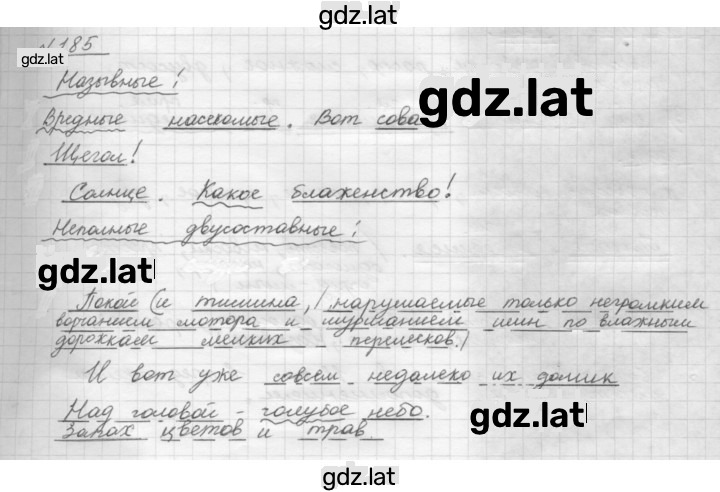 gdz.lat
№185
gdz.lat
Назывные!
gdz.lat
Вредные насекомые. Вот сова
Щегол!
Солнце. Какое блаженство!
Неполные двусоставные!
gdz.lat
Покой (и тишина, / нарушаемые только негромким
ворчанием мотора и шуршанием шин по влажным
дорожкам мелких перелесков./
И вот уже совсем недалеко их домик
Над головой - голубое небо.
gdz.lat
Запах цветов и трав
gdz.lat